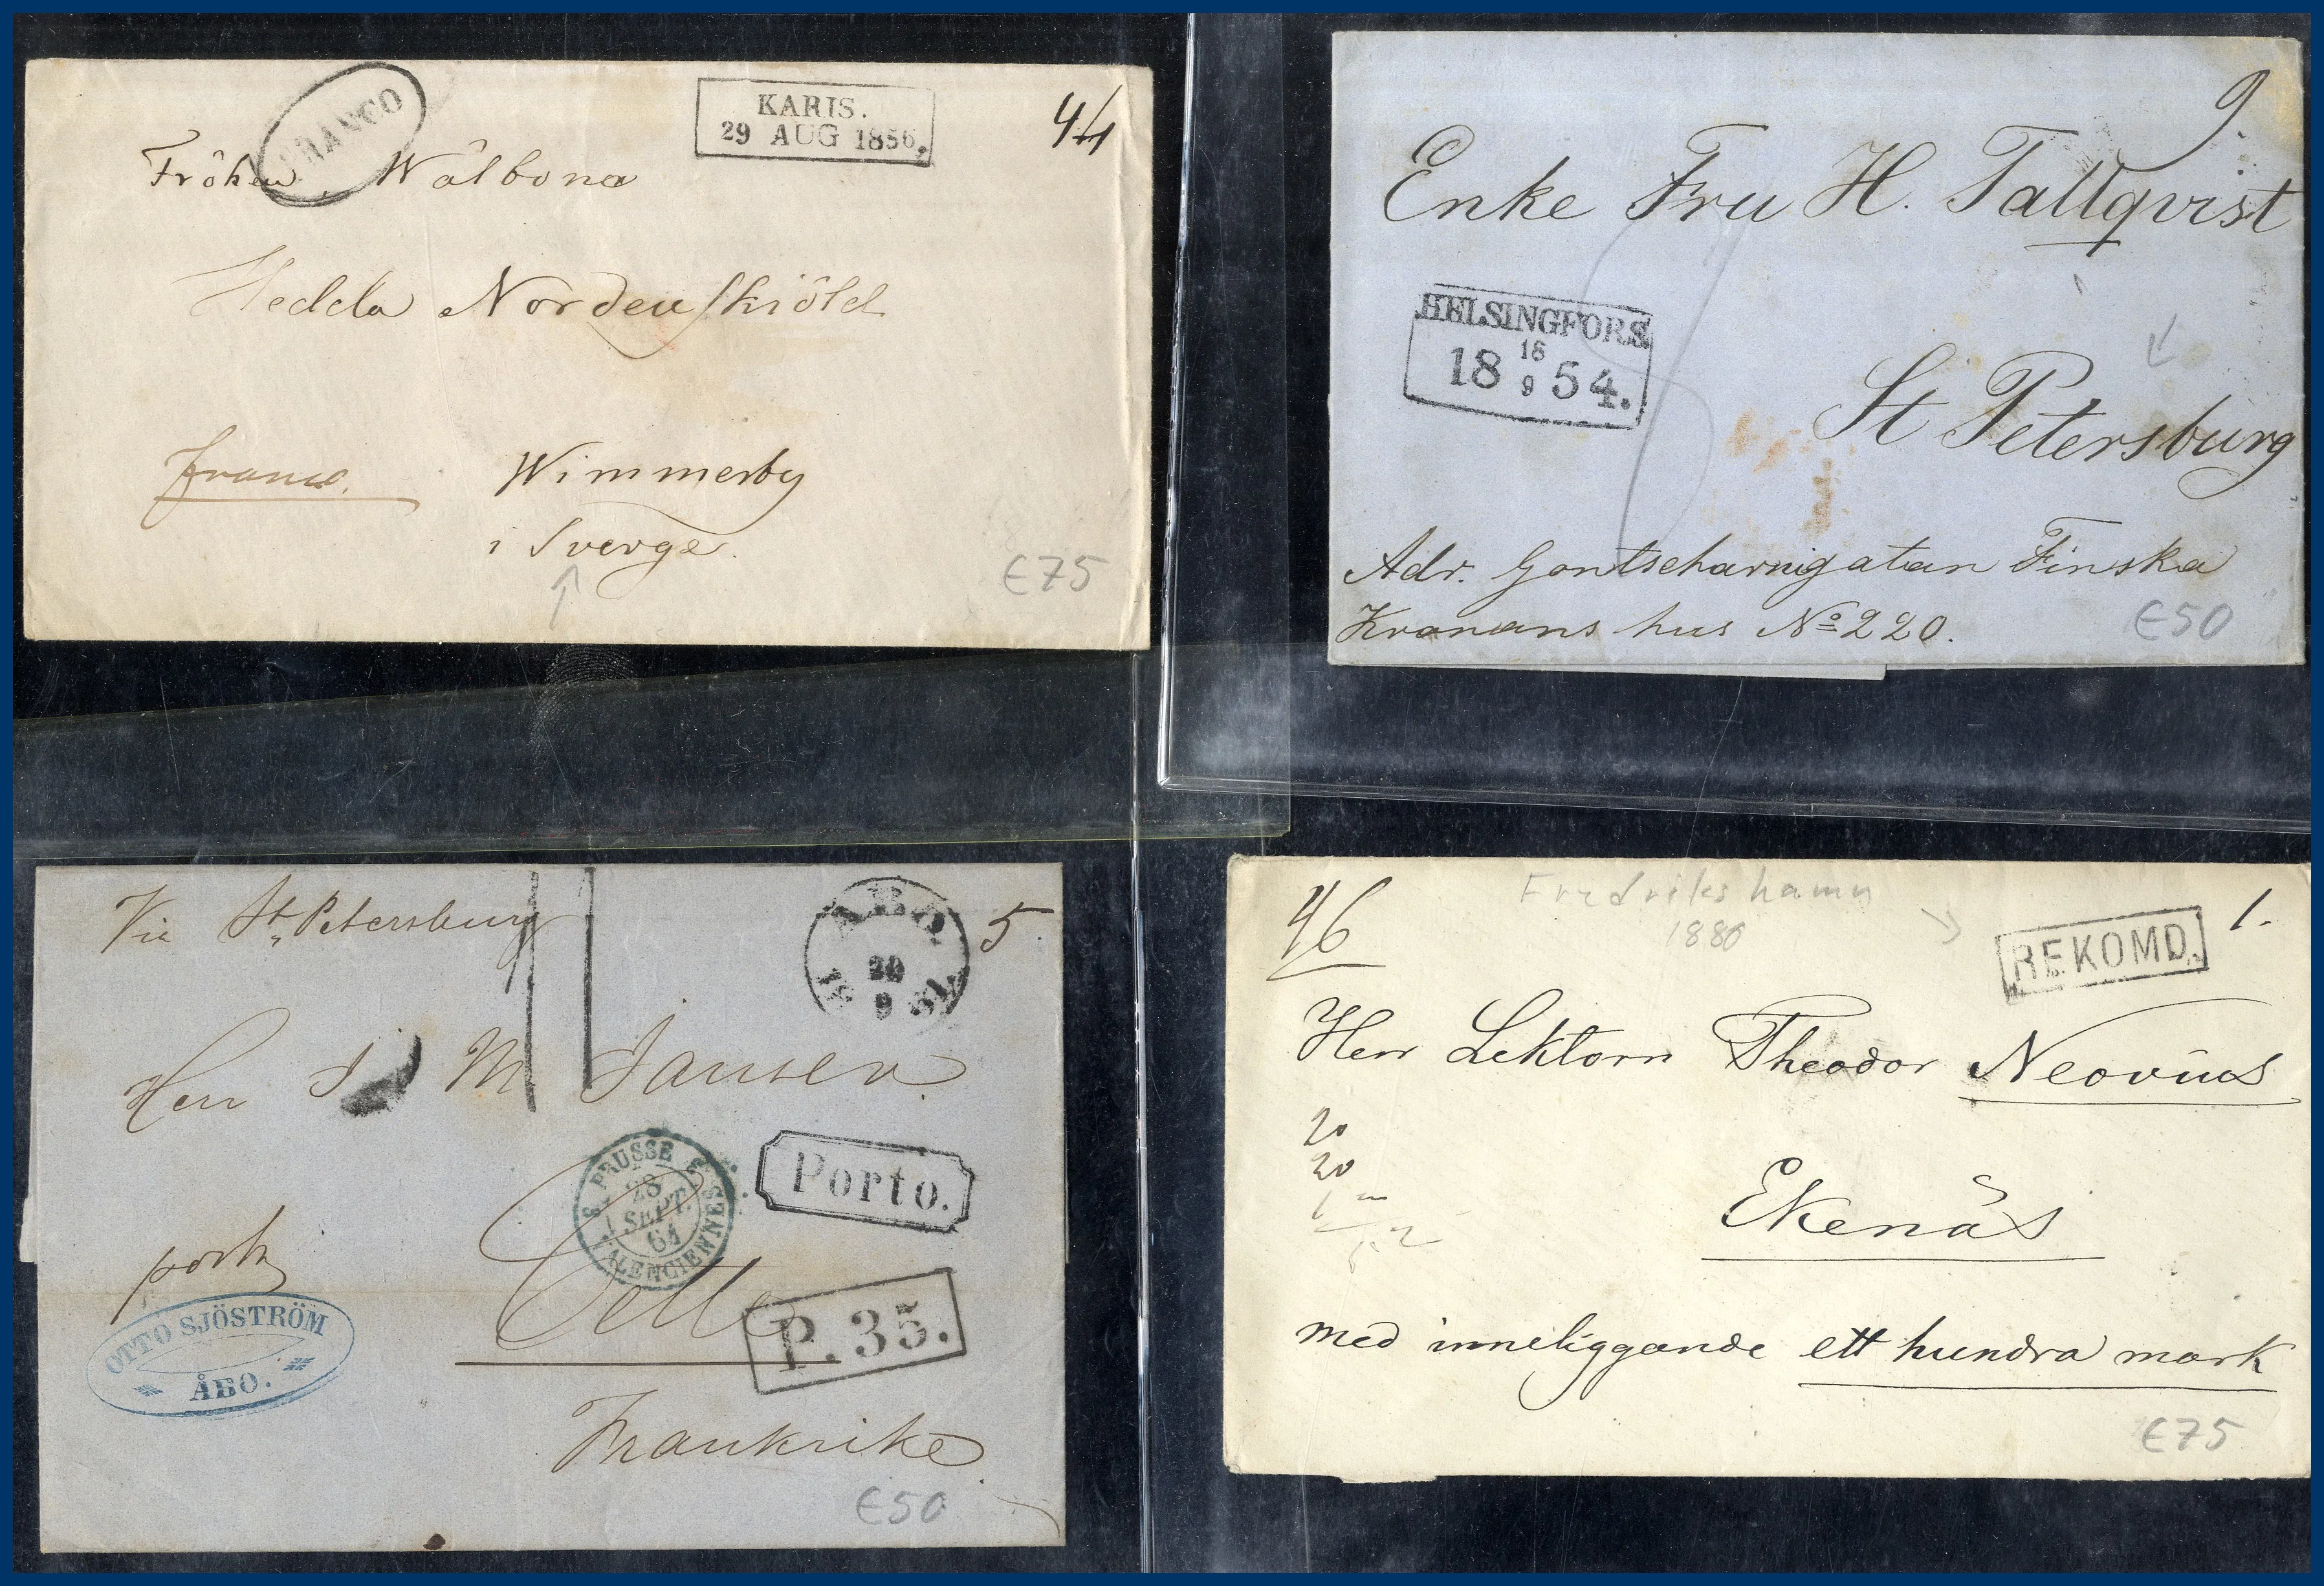 FRANCO
KARIS.
29 AUG 1856.
44
Fröken Wälborna
Hedda Nordenskiöld
franco.
Wimmerby
i Sverge.
€75
9.
Enke Fru H. Tallqvist
HELSINGFORS.
18 18/9 54.
St Petersburg
Adr. Gontscharnigatan Finska
Kronans hus No 220.
€50
Via St. Petersburg
ÅBO
20
9
18 61
5.
Herr J M Jansen
PRUSSE
28
SEPT.
61
VALENCIENNES
Porto.
porto
OTTO SJÖSTRÖM
ÅBO.
Cette
P.35.
Frankrike
€50
46
Fredrikshamn
1880
REKOMD.
1.
Herr Lektorn Theodor Neovius
20
20
Ekenäs
med inneliggande ett hundra mark
€75